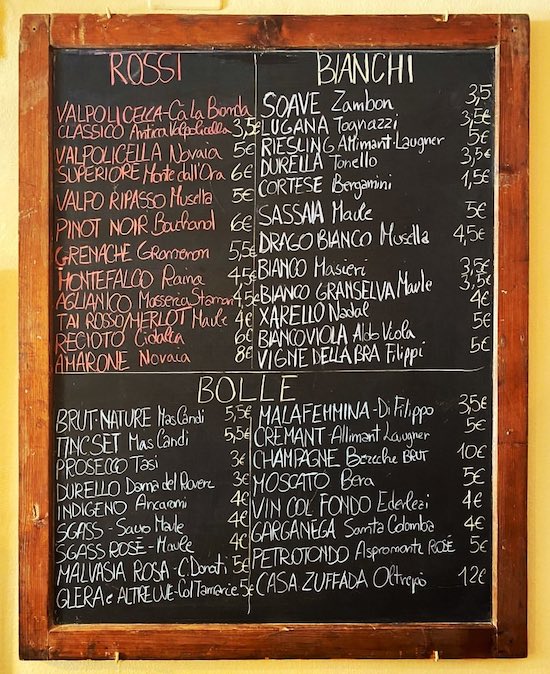 ROSSI
VALPOLICELLA-Cà La Bionda
CLASSICO Antica Valpolicella 3,5€
VALPOLICELLA Novaia 5€
SUPERIORE Monte dall'Ora 6€
VALPO RIPASSO Musella 5€
PINOT NOIR Bouchard 6€
GRENACHE Gramenon 5,5€
MONTEFALCO Raina 4,5€
AGLIANICO Masseria Starnali 4,5€
TAI ROSSO/MERLOT Maule 4€
RECIOTO 6€
AMARONE Novaia 8€
BIANCHI
SOAVE Zambon 3,5
LUGANA Tognazzi 3,5€
RIESLING Allimant-Laugner 5€
DURELLA Tonello 3,5€
CORTESE Bergamini 1,5€
SASSAIA Maule 5€
DRAGO BIANCO Musella 4,5€
BIANCO Masieri 3,5€
BIANCO GRANSELVA Maule 3,5€
XARELLO Nadal 4€
BIANCOVIOLA Aldo Viola 5€
VIGNE DELLA BRA Filippi 5€
BOLLE
BRUT-NATURE Mas Candi 5,5€
TINC SET Mas Candi 5,5€
PROSECCO Tasi 3€
DURELLO Dama del Rovere 3€
INDIGENO Ancarani 4€
SGASS - Sauro Maule 4€
SGASS ROSÈ - Maule 4€
MALVASIA ROSA - C.Donati 5€
GLERA e ALTRE UVE - Col Tamarie 5€
MALAFEMMINA - Di Filippo 3,5€
CRÉMANT Allimant Laugner 5€
CHAMPAGNE BRUT 10€
MOSCATO Bera 5€
VIN COL FONDO Ederlezi 4€
GARGANEGA Santa Colomba 4€
PETROTONDO Aspromonte ROSÈ 5€
CASA ZUFFADA Oltrepò 12€